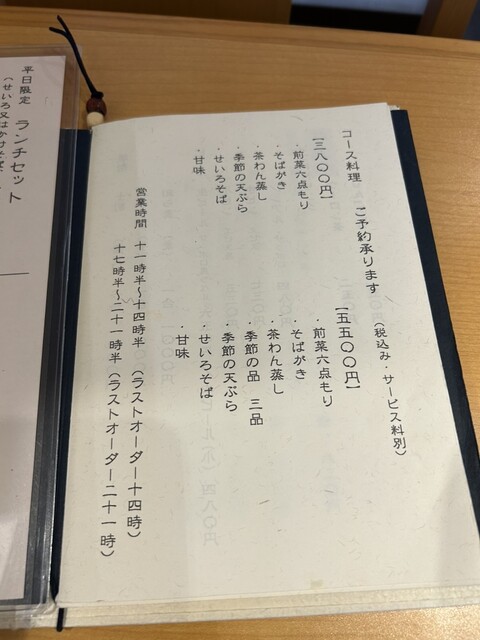 コース料理　ご予約承ります（税込み・サービス料別）
【三八〇〇円】
・前菜六点もり
・そばがき
・茶わん蒸し
・季節の天ぷら
・せいろそば
・甘味
【五五〇〇円】
・前菜六点もり
・そばがき
・茶わん蒸し
・季節の品　三品
・季節の天ぷら
・せいろそば
・甘味
営業時間　十一時半〜十四時半　（ラストオーダー十四時）
十七時半〜二十一時半（ラストオーダー二十一時）
平日限定　ランチセット